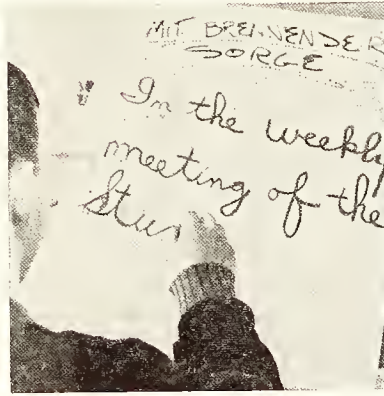 MIT BRENNENDER
SORGE
In the weekly
meeting of the
Stu